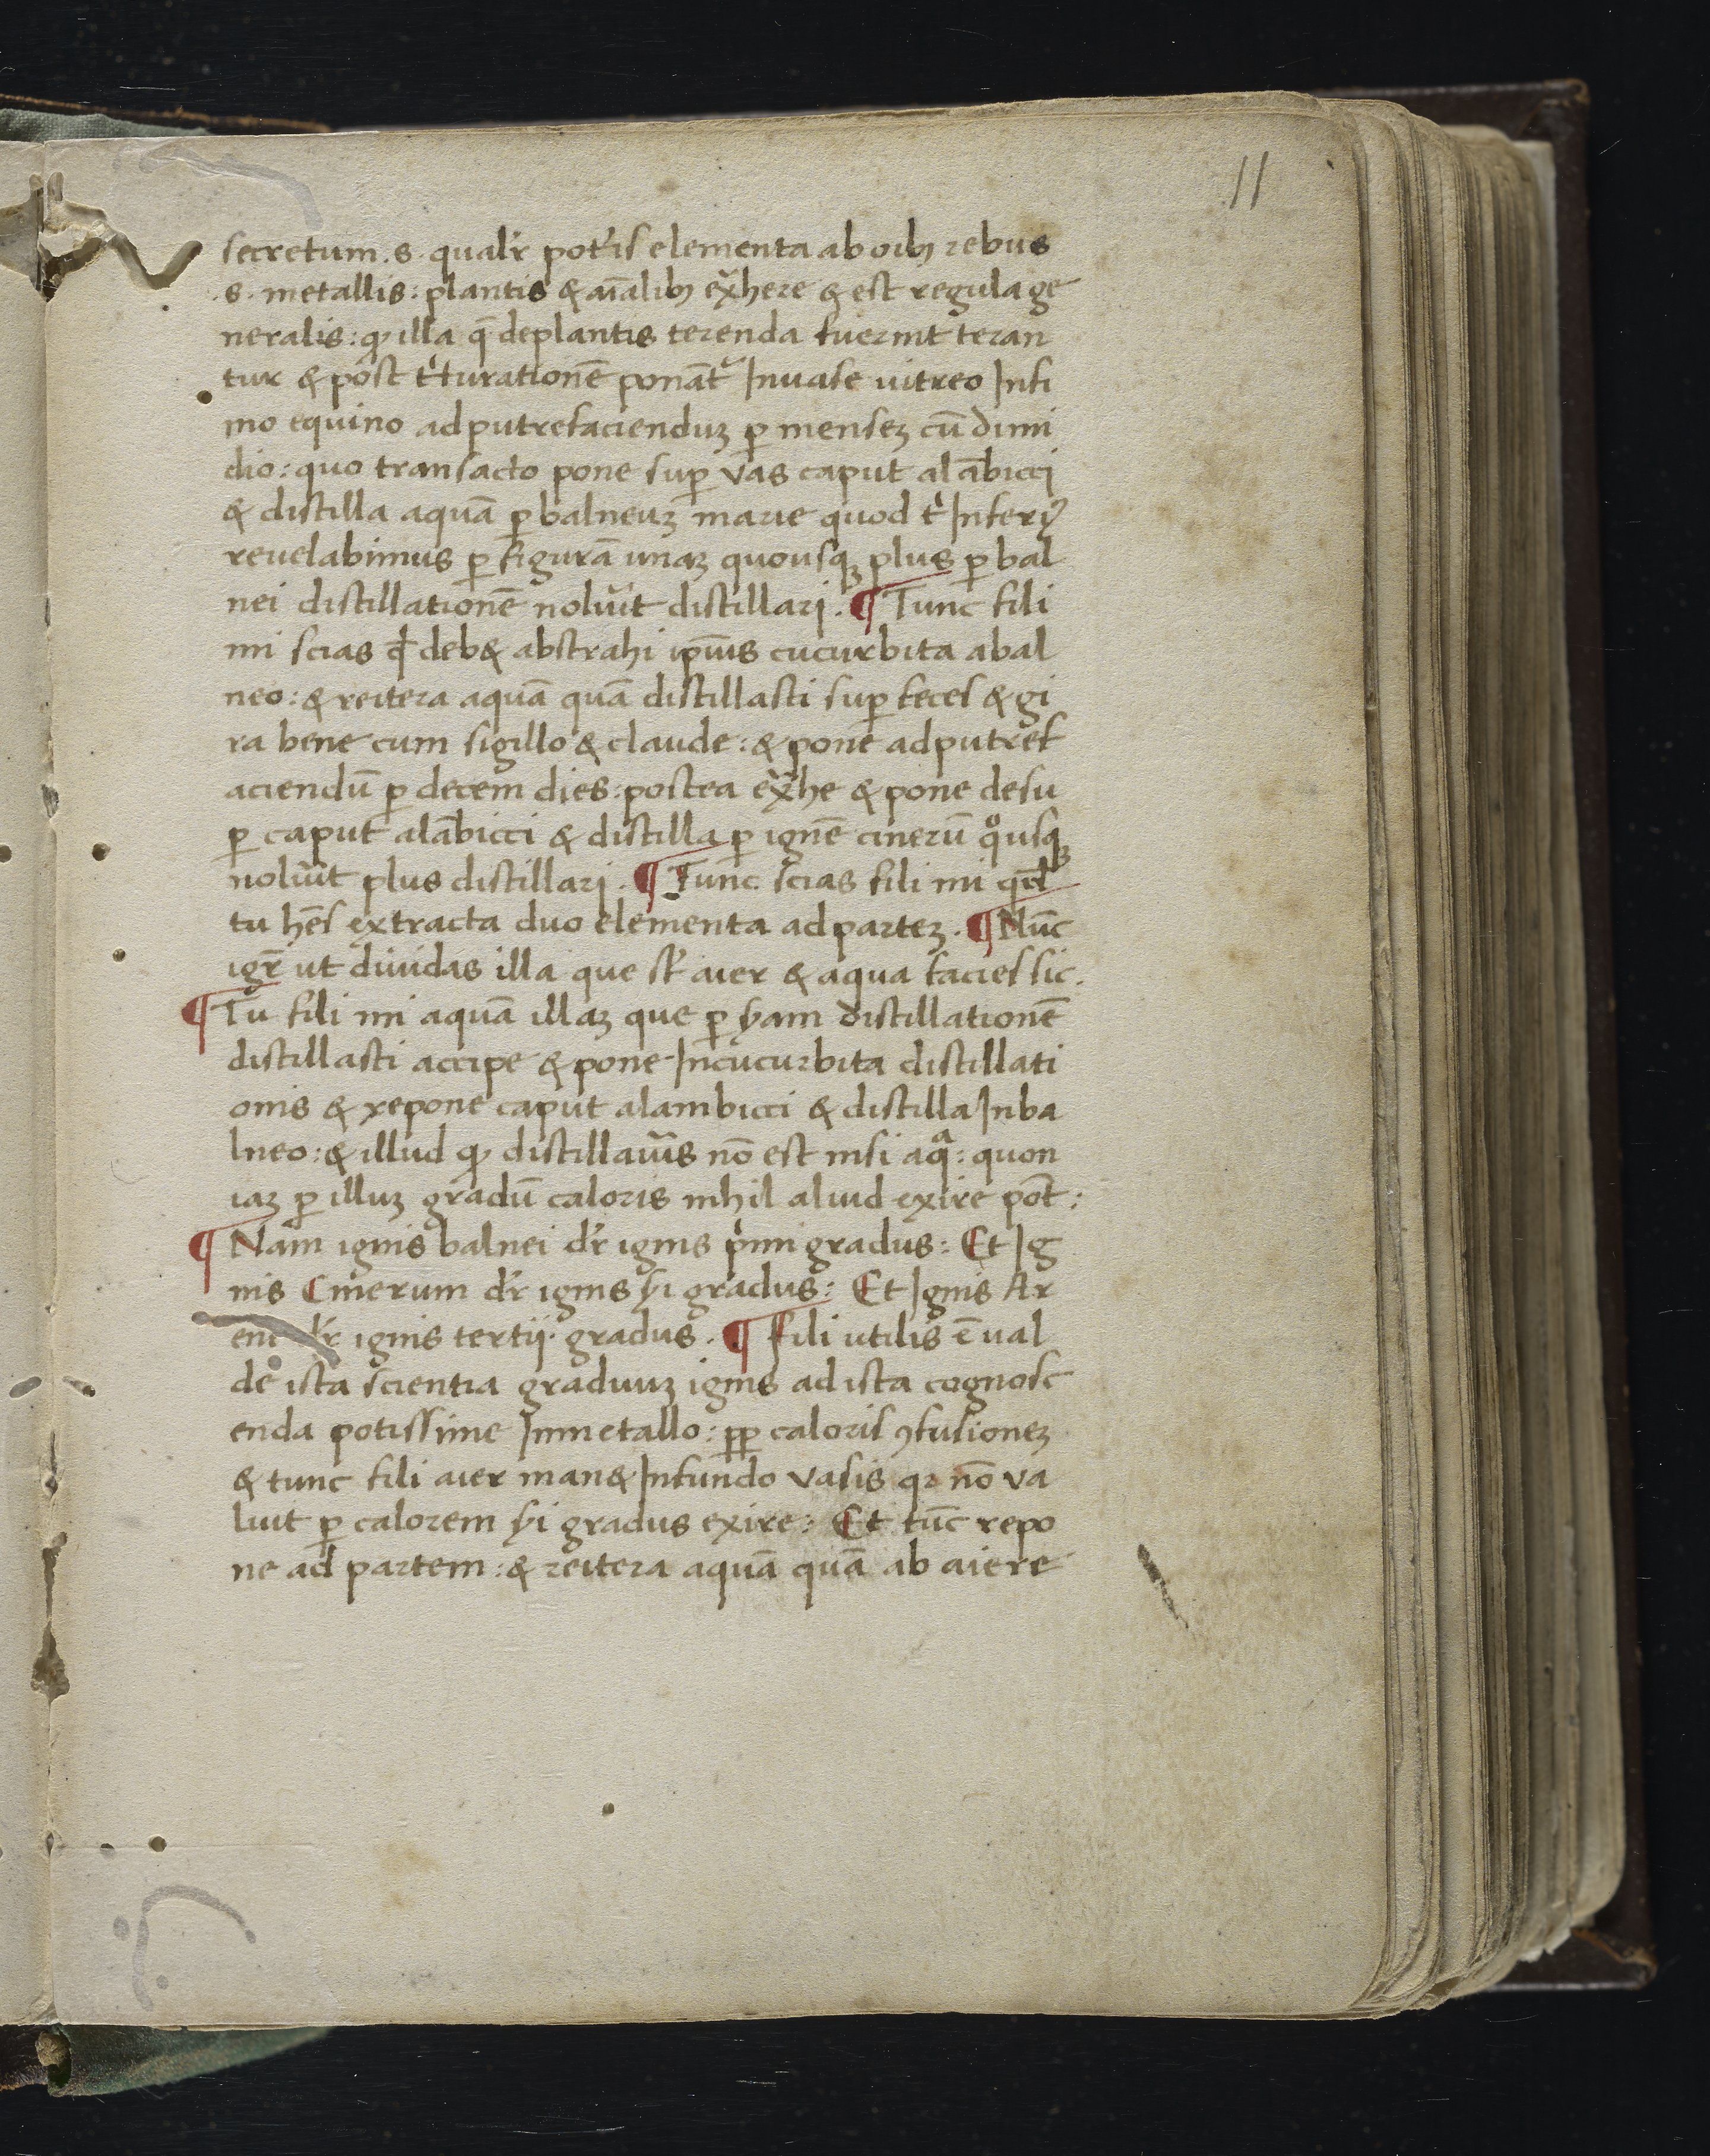 11
secretum .s. qualr̃ potis elementa ab oib; rebus
.s. metallis: plantis & aĩalib; exhere & est regula ge
neralis: ꝙ illa q̃ de plantis terenda fuerint teran
tur & post triturationẽ ponãt᷑ In uase uitreo In fi
mo equino ad putrefacienduʒ ꝑ menseʒ cũ dimi
dio: quo transacto pone suꝑ vas caput alãbicci
& distilla aquã ꝑ balneuʒ marie quod t' Inferiꝰ
reuelabimus ꝑ figurã unaʒ quousqʒ plus ꝑ bal
nei distillationẽ noluit distillari. ¶ Tunc fili
mi scias ꝙ deb& abstrahi ipsius cucurbita a bal
neo: & reitera aquã quã distillasti suꝑ feces & gi
ra bene cum sigillo & claude: & pone ad putref
aciendũ ꝑ decem dies: postea exhe & pone desu
ꝑ caput alãbicci & distilla ꝑ ignẽ cinerũ qͦusqʒ
noluit plus distillari. ¶ Tunc scias fili mi qd̃
tu hẽs extracta duo elementa ad parteʒ. ¶ Nũc
igr̃ ut diuidas illa que st̃ aier & aqua facies sic.
¶ Tu fili mi aquã illaʒ que ꝑ ẏam distillationẽ
distillasti accipe & pone In cucurbita distillati
onis & repone caput alambicci & distilla In ba
lneo: & illud ꝙ distillauĩs nõ est nisi aqᵃ: quon
iaʒ ꝑ illuʒ gradũ caloris nihil aliud exire põt:
¶ Nam ignis balnei dr̃ ignis primi gradus: Et Ig
nis Cinerum dr̃ ignis ẏi gradus: Et Ignis Ar
eni dr̃ ignis tertij gradus. ¶ Fili utilis ẽ ual
de ista scientia graduuʒ ignis ad ista cognosc
enda potissime In metallo: ꝑꝑ caloris ꝯfusioneʒ
& tunc fili aier man& In fundo vasis qꝛ nõ va
luit ꝑ calorem ẏi gradus exire: Et tũc repo
ne ad partem: & reitera aquã quã ab aiere